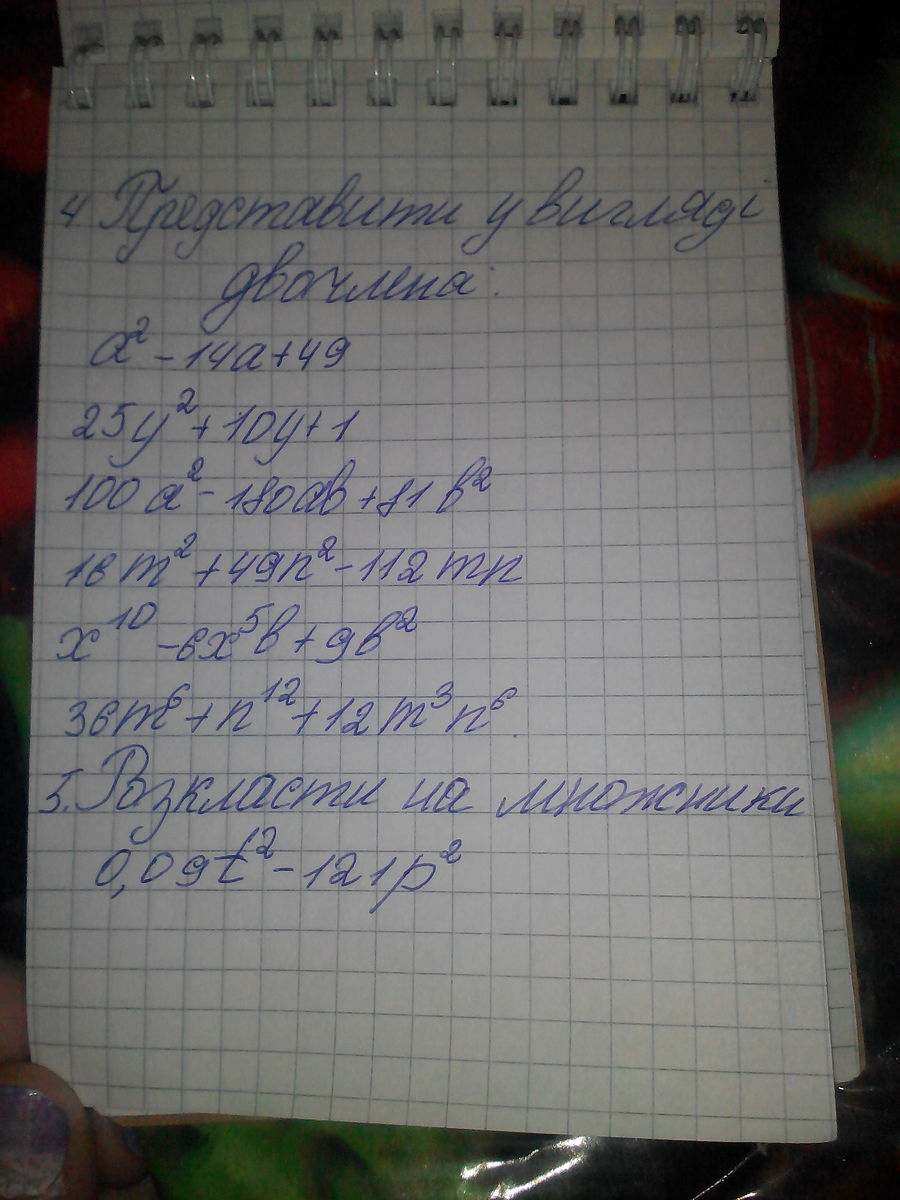 4 Представити у вигляді
двочлена:
a² - 14a + 49
25y² + 10y + 1
100a² - 180ab + 81b²
16m² + 49n² - 112mn
x¹⁰ - 6x⁵b + 9b²
36m⁶ + n¹² + 12m³n⁶
5. Розкласти на множники
0,09t² - 121p²